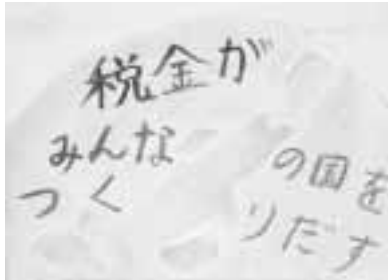 税金が
みんなの国を
つくりだす